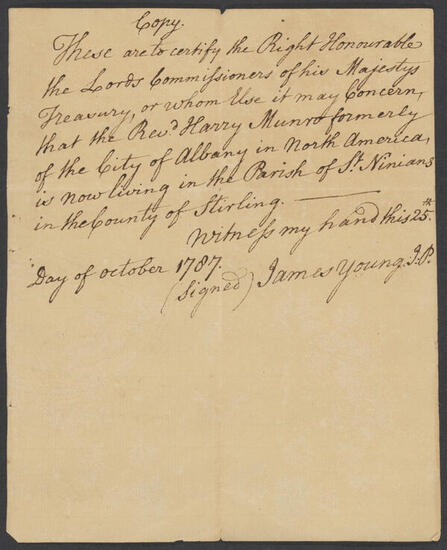 Copy.
These are to certify the Right Honourable
the Lords Commissioners of his Majestys
Treasury, or whom Else it may Concern,
that the Revd Harry Munro formerly
of the City of Albany in North America,
is now living in the Parish of St. Ninians
in the County of Stirling. —
Witness my hand this 25th
Day of october 1787.
(Signed) James Young. J.P.